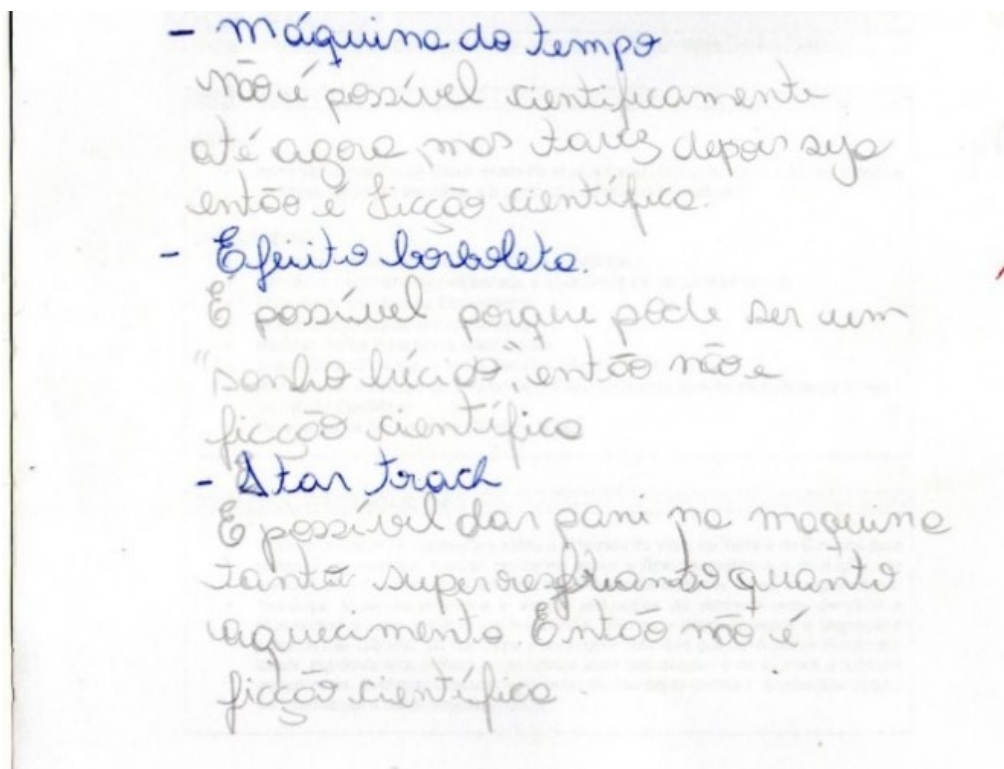 - máquina do tempo
não é possível cientificamente
até agora, mas tavez depois seja
então é ficção científica.
- Efeito borboleta.
É possível porque pode ser um
"sonho lúcido", então não e
ficção científica
- Star trach
É possível dar pani na maquina
tanto superresfriando quanto
aquecimento. Então não é
ficção científica.